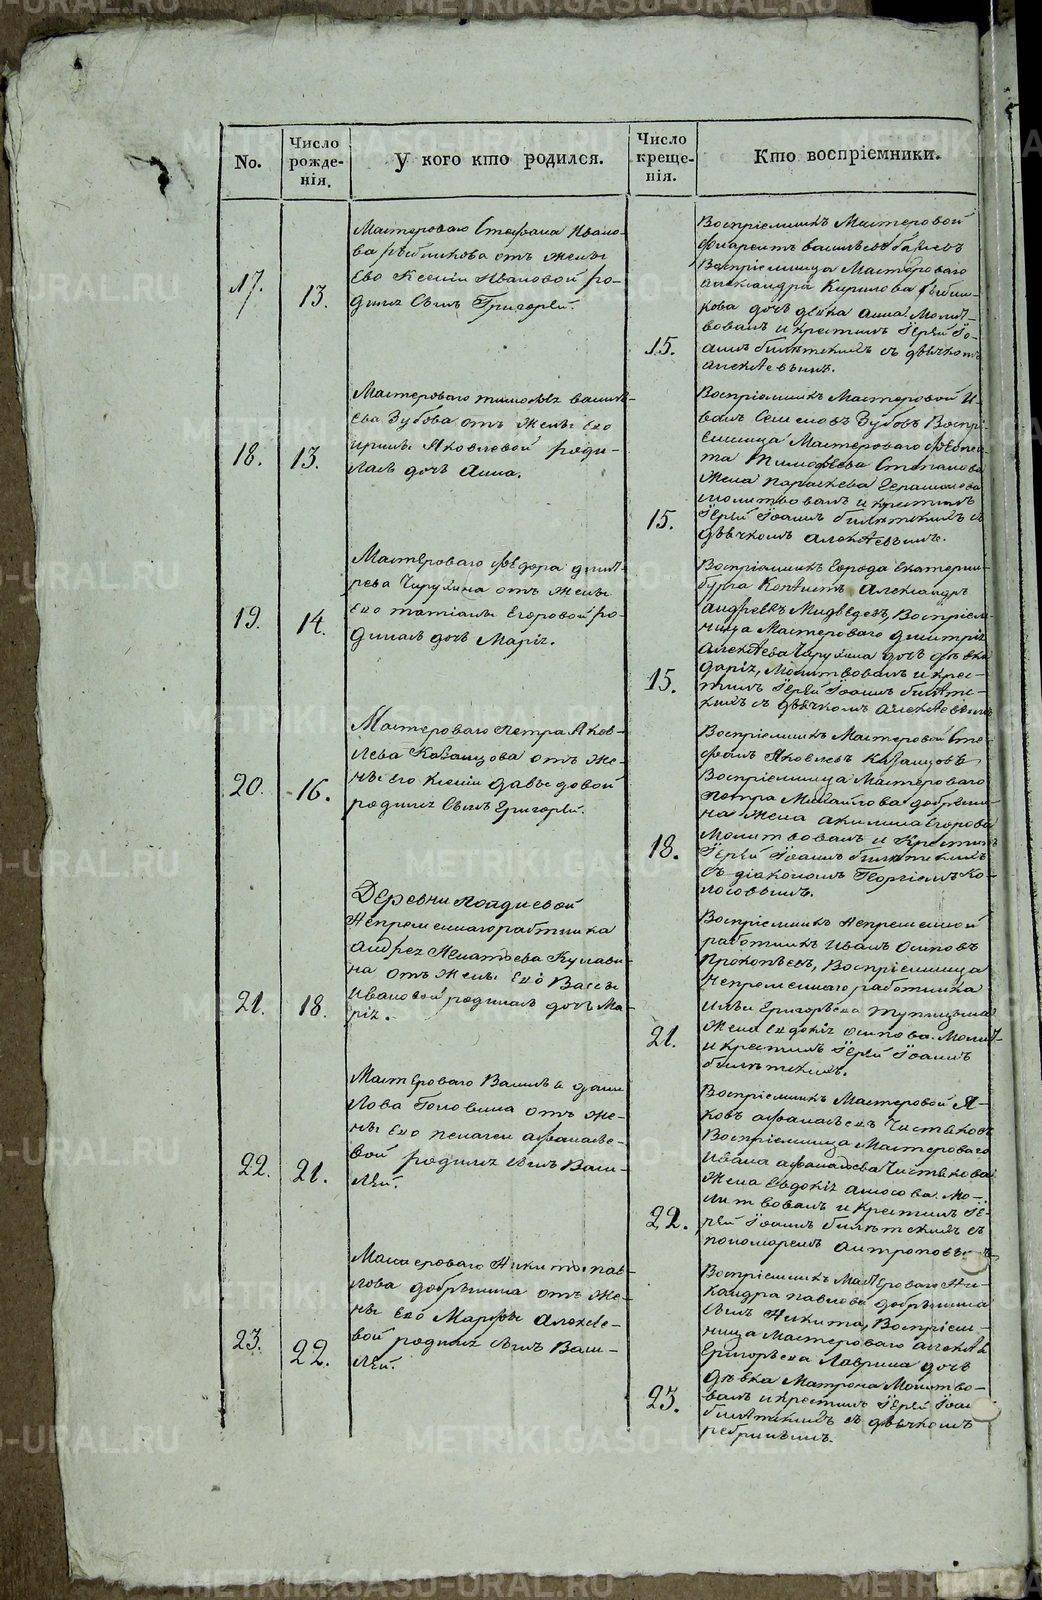 No.
Число рожде-нія.
У кого кто родился.
Число креще-нія.
Кто воспріемники.
17.
13.
Мастероваго Стефана Ивано-
ва Рябинкова отъ жены
Его Ксеніи Ивановой ро-
дился Сынъ Григорей.
15.
Воспріемникъ Мастеровой
Василь евъ
Воспріемница Мастероваго
Александра Кирилова Рябин-
кова дочь девка Анна Молит-
вовалъ и крестилъ Іерей Іо-
аннъ съ дьячкомъ
Алексѣевымъ.
18.
13.
Мастероваго Тимофея Василь-
ева Зубова отъ жены Его
Ирины Яковлевой роди-
лась дочь Анна.
15.
Воспріемникъ Мастеровой И-
ванъ Семеновъ Зубовъ Воспрі-
емница Мастероваго
Тимофеева Степанова
жена Параскева Герасимова
молитвовалъ и крестилъ
Іерей Іоаннъ съ
дьячкомъ Алексѣевымъ.
19.
14.
Мастероваго Федора Дмит-
рева Чирухина отъ жены
Его Татіаны Егоровой ро-
дилась дочь Марія.
15.
Воспріемникъ Города Екатерин-
бурга Копіистъ Александръ
Андреевъ Медведевъ, Воспріем-
ница Мастероваго Дмитрія
Алексѣева Чирухина дочь дѣвка
Дарія, Молитвовалъ и крес-
тилъ Іерей Іоаннъ
съ дьячкомъ Алексѣевымъ
20.
16.
Мастероваго Петра Яков-
лева Казанцова отъ же-
ны его Ксеніи Давыдовой
родился Сынъ Григорей.
18.
Воспріемникъ Мастеровой Сте-
фанъ Яковлевъ Казанцовъ
Воспріемница Мастероваго
Петра Михайлова Добрыни-
на жена Акилина Егорова
Молитвовалъ и Крестилъ
Іерей Іоаннъ
съ діакономъ Георгіемъ Ко-
лосовымъ.
21.
18.
Деревни
Непременнаго работника
Андрея Игнатьева
отъ жены Его Вассы
Ивановой родилась дочь Ма-
рія.
21.
Воспріемникъ Непременной
работникъ Иванъ Осиповъ
Прокопьевъ, Воспріемница
Непременнаго работника
Ильи Григорьева
жена Евдокія Осипова. Молит-
и крестилъ Іерей Іоаннъ
22.
21.
Мастероваго Василья Дани-
лова Головина отъ же-
ны Его Пелагеи Афанасье-
вой родился Сынъ Васи-
лей.
22.
Воспріемникъ Мастеровой Я-
ковъ Афанасьевъ Чистяковъ
Воспріемница Мастероваго
Ивана Афанасьева Чистякова
жена Евдокія Амосова. Мо-
литвовалъ и крестилъ Іе-
рей Іоаннъ съ
пономаремъ
23.
22.
Мастероваго Никиты Пав-
лова Добрынина отъ же-
ны Его Марфы Алексѣе-
вой родился Сынъ Васи-
лей.
23.
Воспріемникъ Мастероваго Ни-
кандра Павлова Добрынина
Сынъ Никита, Воспріем-
ница Мастероваго Алексѣя
Григорьева Лаврина дочь
дѣвка Матрона Молитво-
валъ и крестилъ Іерей Іоан
съ дьячкомъ
METRIKI.GASO-URAL.RU